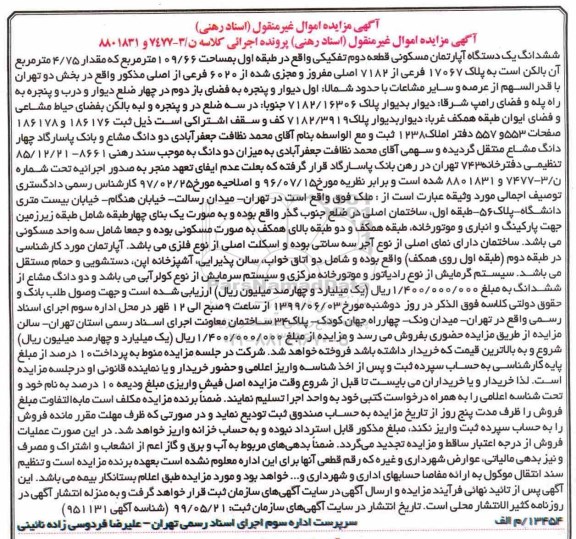 آگهی مزایده اموال غیرمنقول (اسناد رهنی)
آگهی مزایده اموال غیرمنقول (اسناد رهنی) پرونده اجرائی کلاسه ن/۳-۷٤۷۷ و ۸۸۰۱۸۳۱
ششدانگ یک دستگاه آپارتمان مسکونی قطعه دوم تفکیکی واقع در طبقه اول بمساحت ۱۰۹/۶۶ مترمربع که مقدار ۴/۷۵ مترمربع
آن بالکن است به پلاک ۱۷۰۶۷ فرعی از ۷۱۸۲ اصلی مفروز و مجزی شده از ۶۰۲۰ فرعی از اصلی مذکور واقع در بخش دو تهران
با قدرالسهم از عرصه و سایر مشاعات با حدود شمالا: اول دیوار و پنجره به فضای باز دوم در چهار ضلع دیوار و درب و پنجره به
راه پله و فضای رامپ شرقا: دیوار بدیوار پلاک ۷۱۸۲/۱۶۳۰۶ جنوبا: در سه ضلع در و پنجره و لبه بالکن بفضای حیاط مشاعی
و فضای همکف غربا: دیواربدیوار پلاک ۷۱۸۲/۳۹۱۹ کف و سقف اشتراکی است ذیل ثبت ۱۸۶۱۷۶ و ۱۸۶۱۷۸
صفحات ۵۵۳ و ۵۵۷ دفتر املاک ۱۲۳۸ ثبت و مع الواسطه بنام آقای محمد نظافت جعفرآبادی دو دانگ مشاع و بانک پاسارگاد چهار
دانگ مشاع منتقل گردیده و سهمی آقای محمد نظافت جعفرآبادی به میزان دو دانگ به موجب سند رهنی ۸۶۶۱- ۸۵/۱۲/۲۱
تنظیمی دفترخانه ۷۴۳ تهران در رهن بانک پاسارگاد قرار گرفته که بعلت عدم ایفای تعهد منجر به صدور اجرائیه تحت شماره
ن/۳-۷۴۷۷ و ۸۸۰۱۸۳۱ شده است و برابر نظریه مورخ ۹۶/۰۷/۱۵ و اصلاحیه مورخ ۹۷/۰۲/۲۵ کارشناس رسمی دادگستری
توصیف اجمالی مورد وثیقه عبارت است از : ملک فوق واقع است در تهران- میدان رسالت- خیابان هنگام- خیابان بیست متری
دانشگاه-پلاک۵۶-طبقه اول، ساختمان اصلی در ضلع جنوب گذر واقع بوده و به صورت یک بنای چهارطبقه شامل طبقه زیرزمین
جهت پارکینگ و انباری و موتورخانه، طبقه همکف و دو طبقه بالای همکف به صورت مسکونی بوده و جمعا شامل سه واحد مسکونی
می باشد. ساختمان دارای نمای اصلی از نوع آجر سه سانتی بوده و اسکلت اصلی از نوع فلزی می باشد. آپارتمان مورد کارشناسی
در طبقه دوم (طبقه اول روی همکف) واقع بوده و شامل دو اتاق خواب، سالن پذیرایی، آشپزخانه اپن، دستشویی و حمام مستقل
می باشد. سیستم گرمایش از نوع رادیاتور و موتورخانه مرکزی و سیستم سرمایش از نوع کولرآبی می باشد و دو دانگ مشاع از
ششدانگ به مبلغ ۱/۴۰۰/۰۰۰/۰۰۰ ریال (یک میلیارد و چهارصد میلیون ریال) ارزیابی شده است و جهت وصول طلب بانک و
حقوق دولتی کلاسه فوق الذکر در روز دوشنبه مورخ ۱۳۹۹/۰۶/۰۳ از ساعت ۹ صبح الی ۱۲ ظهر در محل اداره سوم اجرای اسناد
رسمی واقع در تهران- میدان ونک- چهارراه جهان کودک- پلاک ۳۴ ساختمان معاونت اجرای اسناد رسمی استان تهران- سالن
مزایده از طریق مزایده حضوری بفروش می رسد و مزایده از مبلغ ۱/۴۰۰/۰۰۰/۰۰۰ ریال (یک میلیارد و چهارصد میلیون ریال)
شروع و به بالاترین قیمت که خریدار داشته باشد فروخته خواهد شد. شرکت در جلسه مزایده منوط به پرداخت ۱۰ درصد از مبلغ
پایه کارشناسی به حساب سپرده ثبت و پس از اخذ شناسه واریز اعلامی و حضور خریدار و یا نماینده قانونی او درجلسه مزایده
است. لذا خریدار و یا خریداران می بایست تا قبل از شروع وقت مزایده اصل فیش واریزی مبلغ ودیعه ۱۰ درصد به نام خود و
تحت شناسه اعلامی را به همراه درخواست کتبی خود به واحد اجرا تسلیم نمایند. ضمنا برنده مزایده مکلف است مابه‌التفاوت مبلغ
فروش را ظرف مدت پنج روز از تاریخ مزایده به حساب صندوق ثبت تودیع نماید و در صورتی که ظرف مهلت مقرر مانده فروش
را به حساب سپرده ثبت واریز نکند، مبلغ مذکور قابل استرداد نبوده و به حساب خزانه واریز خواهد شد. در این صورت عملیات
فروش از درجه اعتبار ساقط و مزایده تجدید می‌گردد. ضمناً بدهی‌های مربوط به آب و برق و گاز اعم از انشعاب و اشتراک و مصرف
و نیز بدهی مالیاتی، عوارض شهرداری و غیره که رقم قطعی آنها برای این اداره معلوم نشده است بعهده برنده مزایده است و تنظیم
سند انتقال موکول به ارائه مفاصا حسابهای اداری و شهرداری و... خواهد بود و مورد مزایده طبق اعلام بستانکار بیمه می باشد. این
آگهی پس از تائید نهائی فرآیند مزایده و ارسال آگهی در سایت آگهی‌های سازمان ثبت قرار خواهد گرفت و به منزله انتشار آگهی در
روزنامه کثیر الانتشار محلی است. تاریخ انتشار در سایت آگهی‌های سازمان ثبت: ۹۹/۰۵/۲۱ (شناسه آگهی ۹۵۱۱۳۱)
۱۳۴۵۴/م الف سرپرست اداره سوم اجرای اسناد رسمی تهران- علیرضا فردوسی زاده نائینی